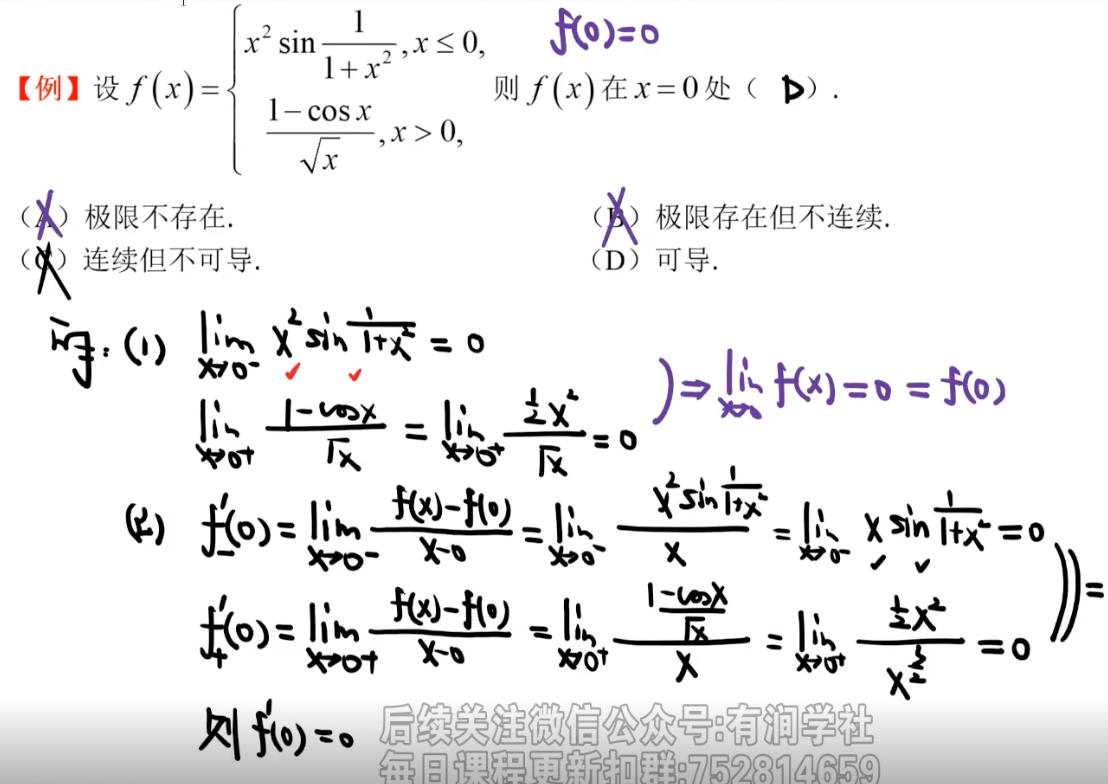 【例】设 f(x) = { x² sin 1/(1+x²), x ≤ 0, (1−cos x)/√x, x > 0, 则 f(x) 在 x = 0 处（ D ）.
f(0)=0
（A）极限不存在.
（B）极限存在但不连续.
（C）连续但不可导.
（D）可导.
(1) lim x→0⁻ x² sin 1/(1+x²) = 0
lim x→0⁺ (1−cosx)/√x = lim x→0⁺ (½x²)/√x = 0
) ⇒ lim x→0 f(x) = 0 = f(0)
(2) f₋′(0) = lim x→0⁻ (f(x)−f(0))/(x−0) = lim x→0⁻ (x² sin 1/(1+x²))/x = lim x→0⁻ x sin 1/(1+x²) = 0
f₊′(0) = lim x→0⁺ (f(x)−f(0))/(x−0) = lim x→0⁺ ((1−cosx)/√x)/x = lim x→0⁺ (½x²)/x^(3/2) = 0
)) =
则 f′(0) = 0
后续关注微信公众号:有润学社
每日课程更新扣群:752814659